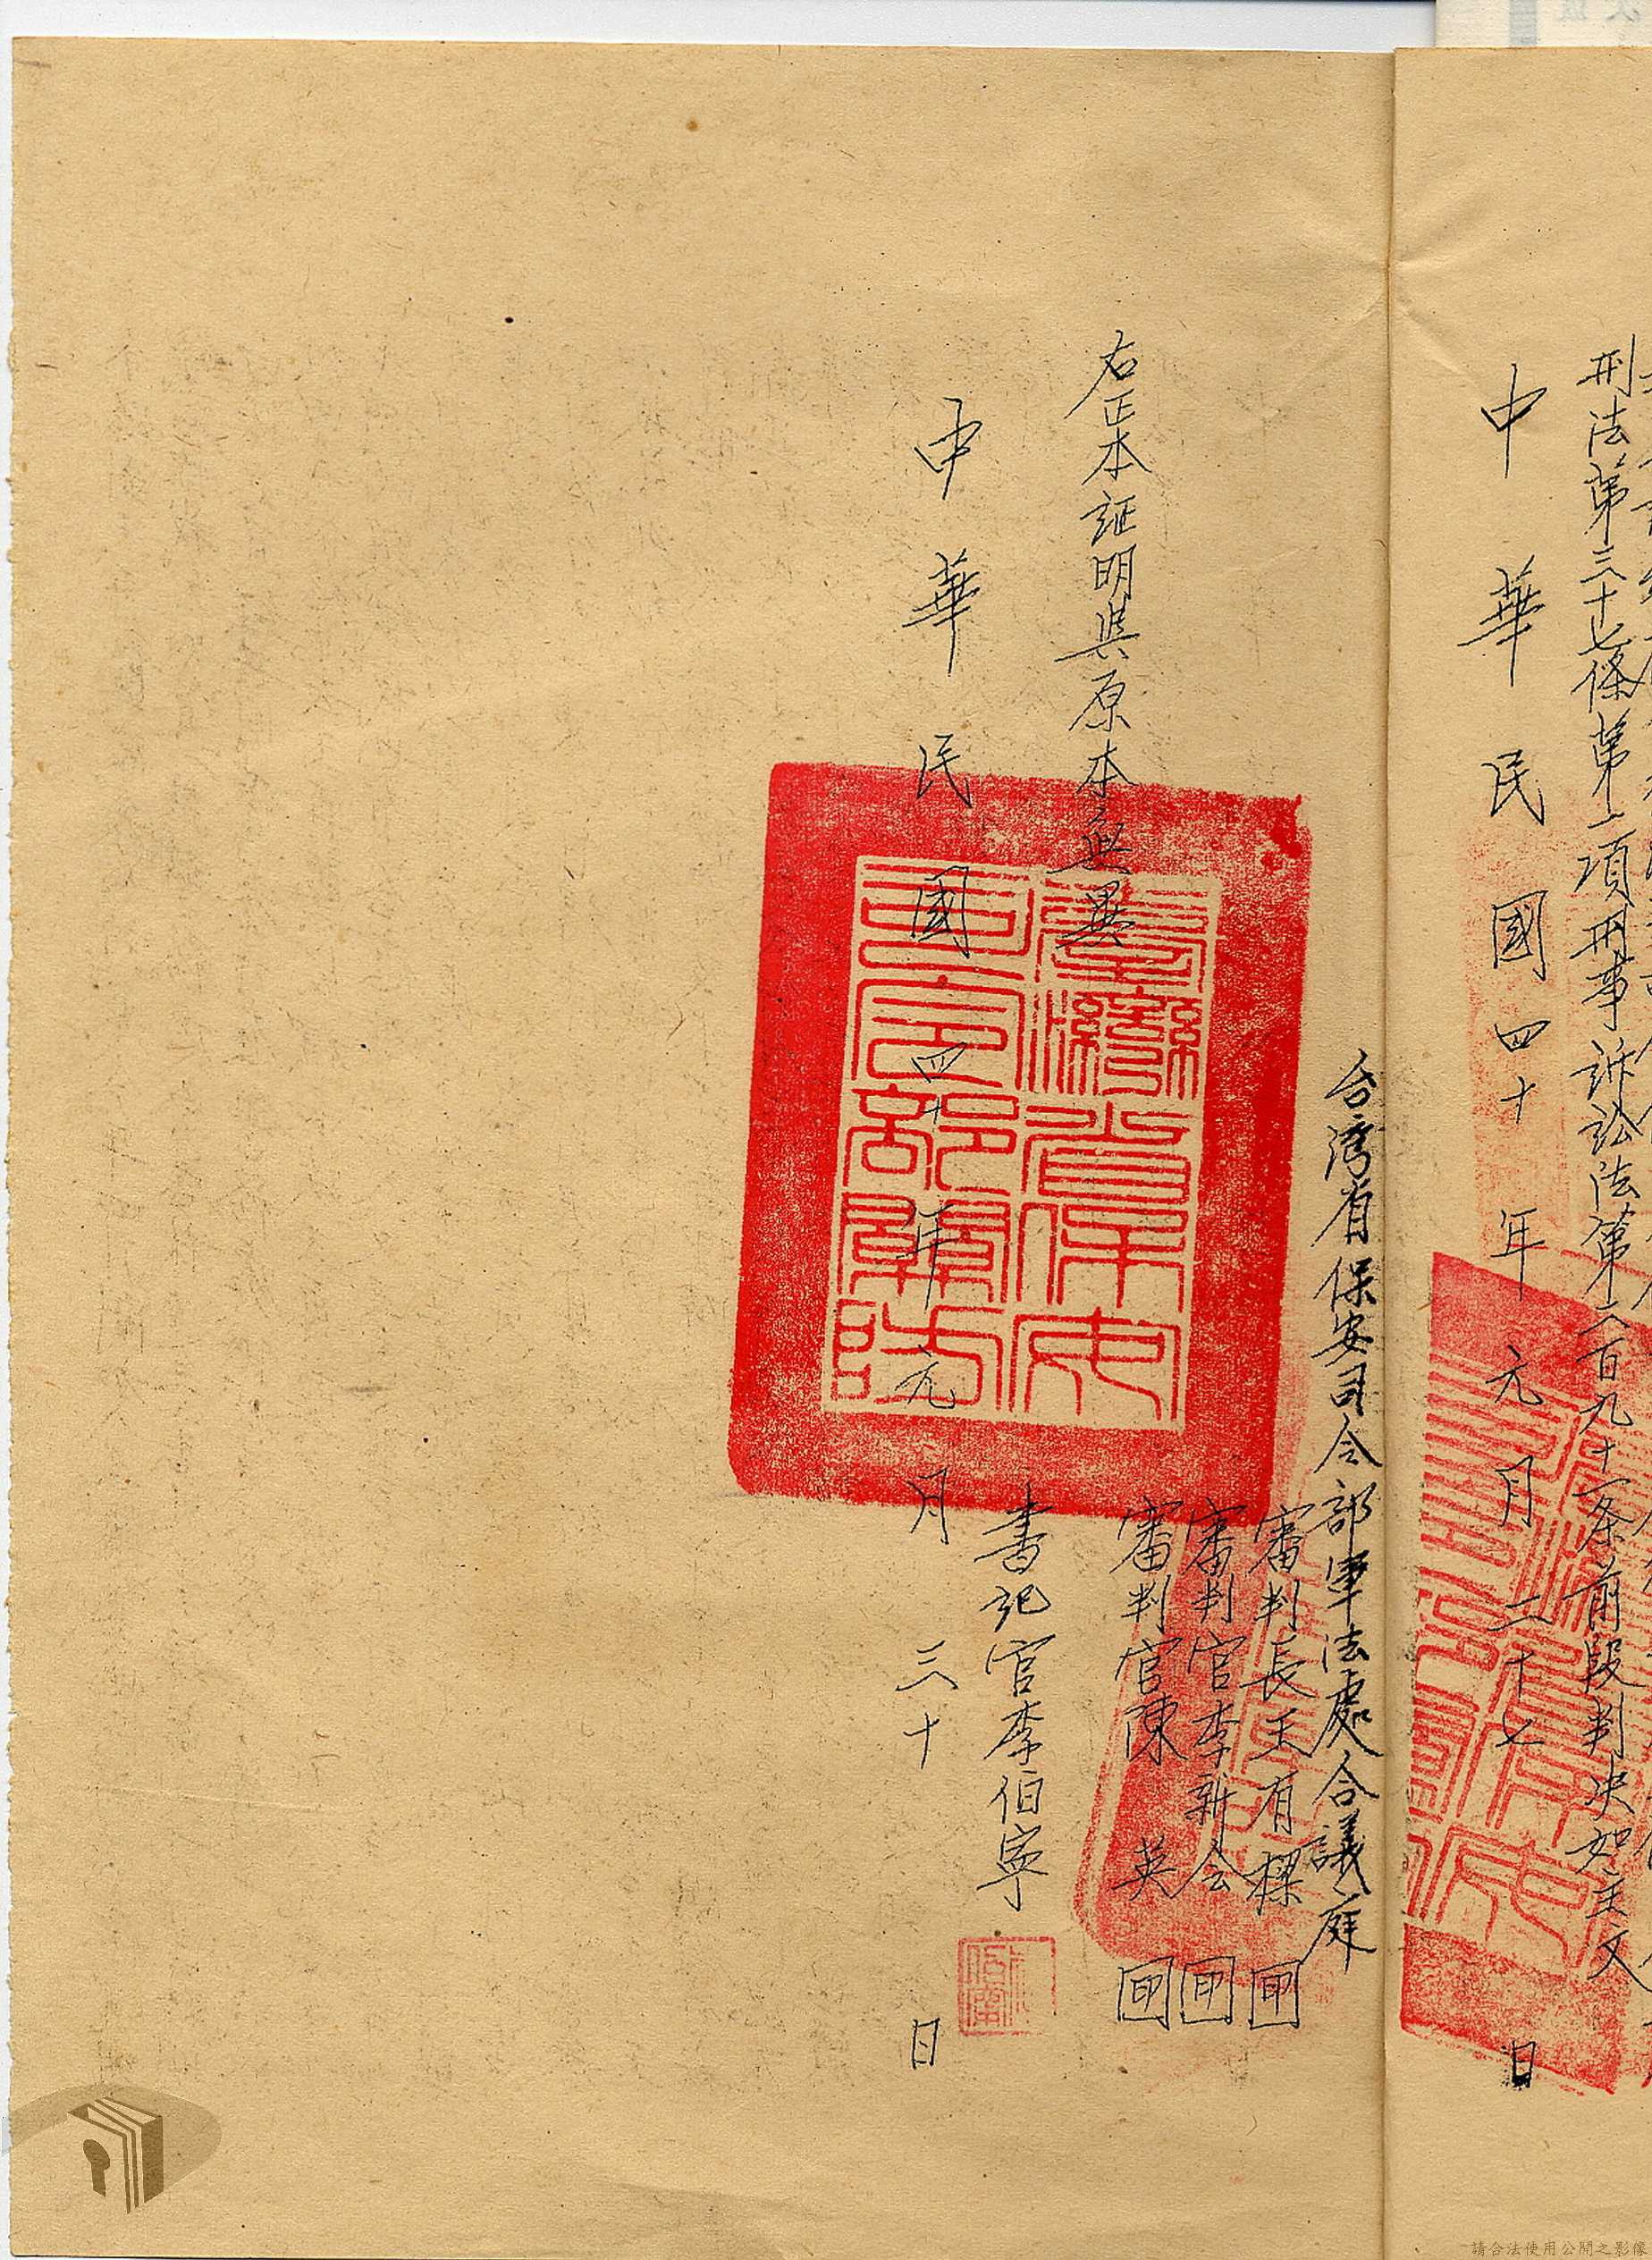 刑法第三十七條第二項刑事訴訟法第二百九十一条前段判决如主文
中華民國四十年元月二十七日
台湾省保安司令部軍法處合議庭
審判長王有樑 印
審判官李新会 印
審判官陳英 印
右正本証明與原本無異
書记官李伯寧
中華民國四十年元月三十日
臺灣省保安司令部軍法
請合法使用公開之影像